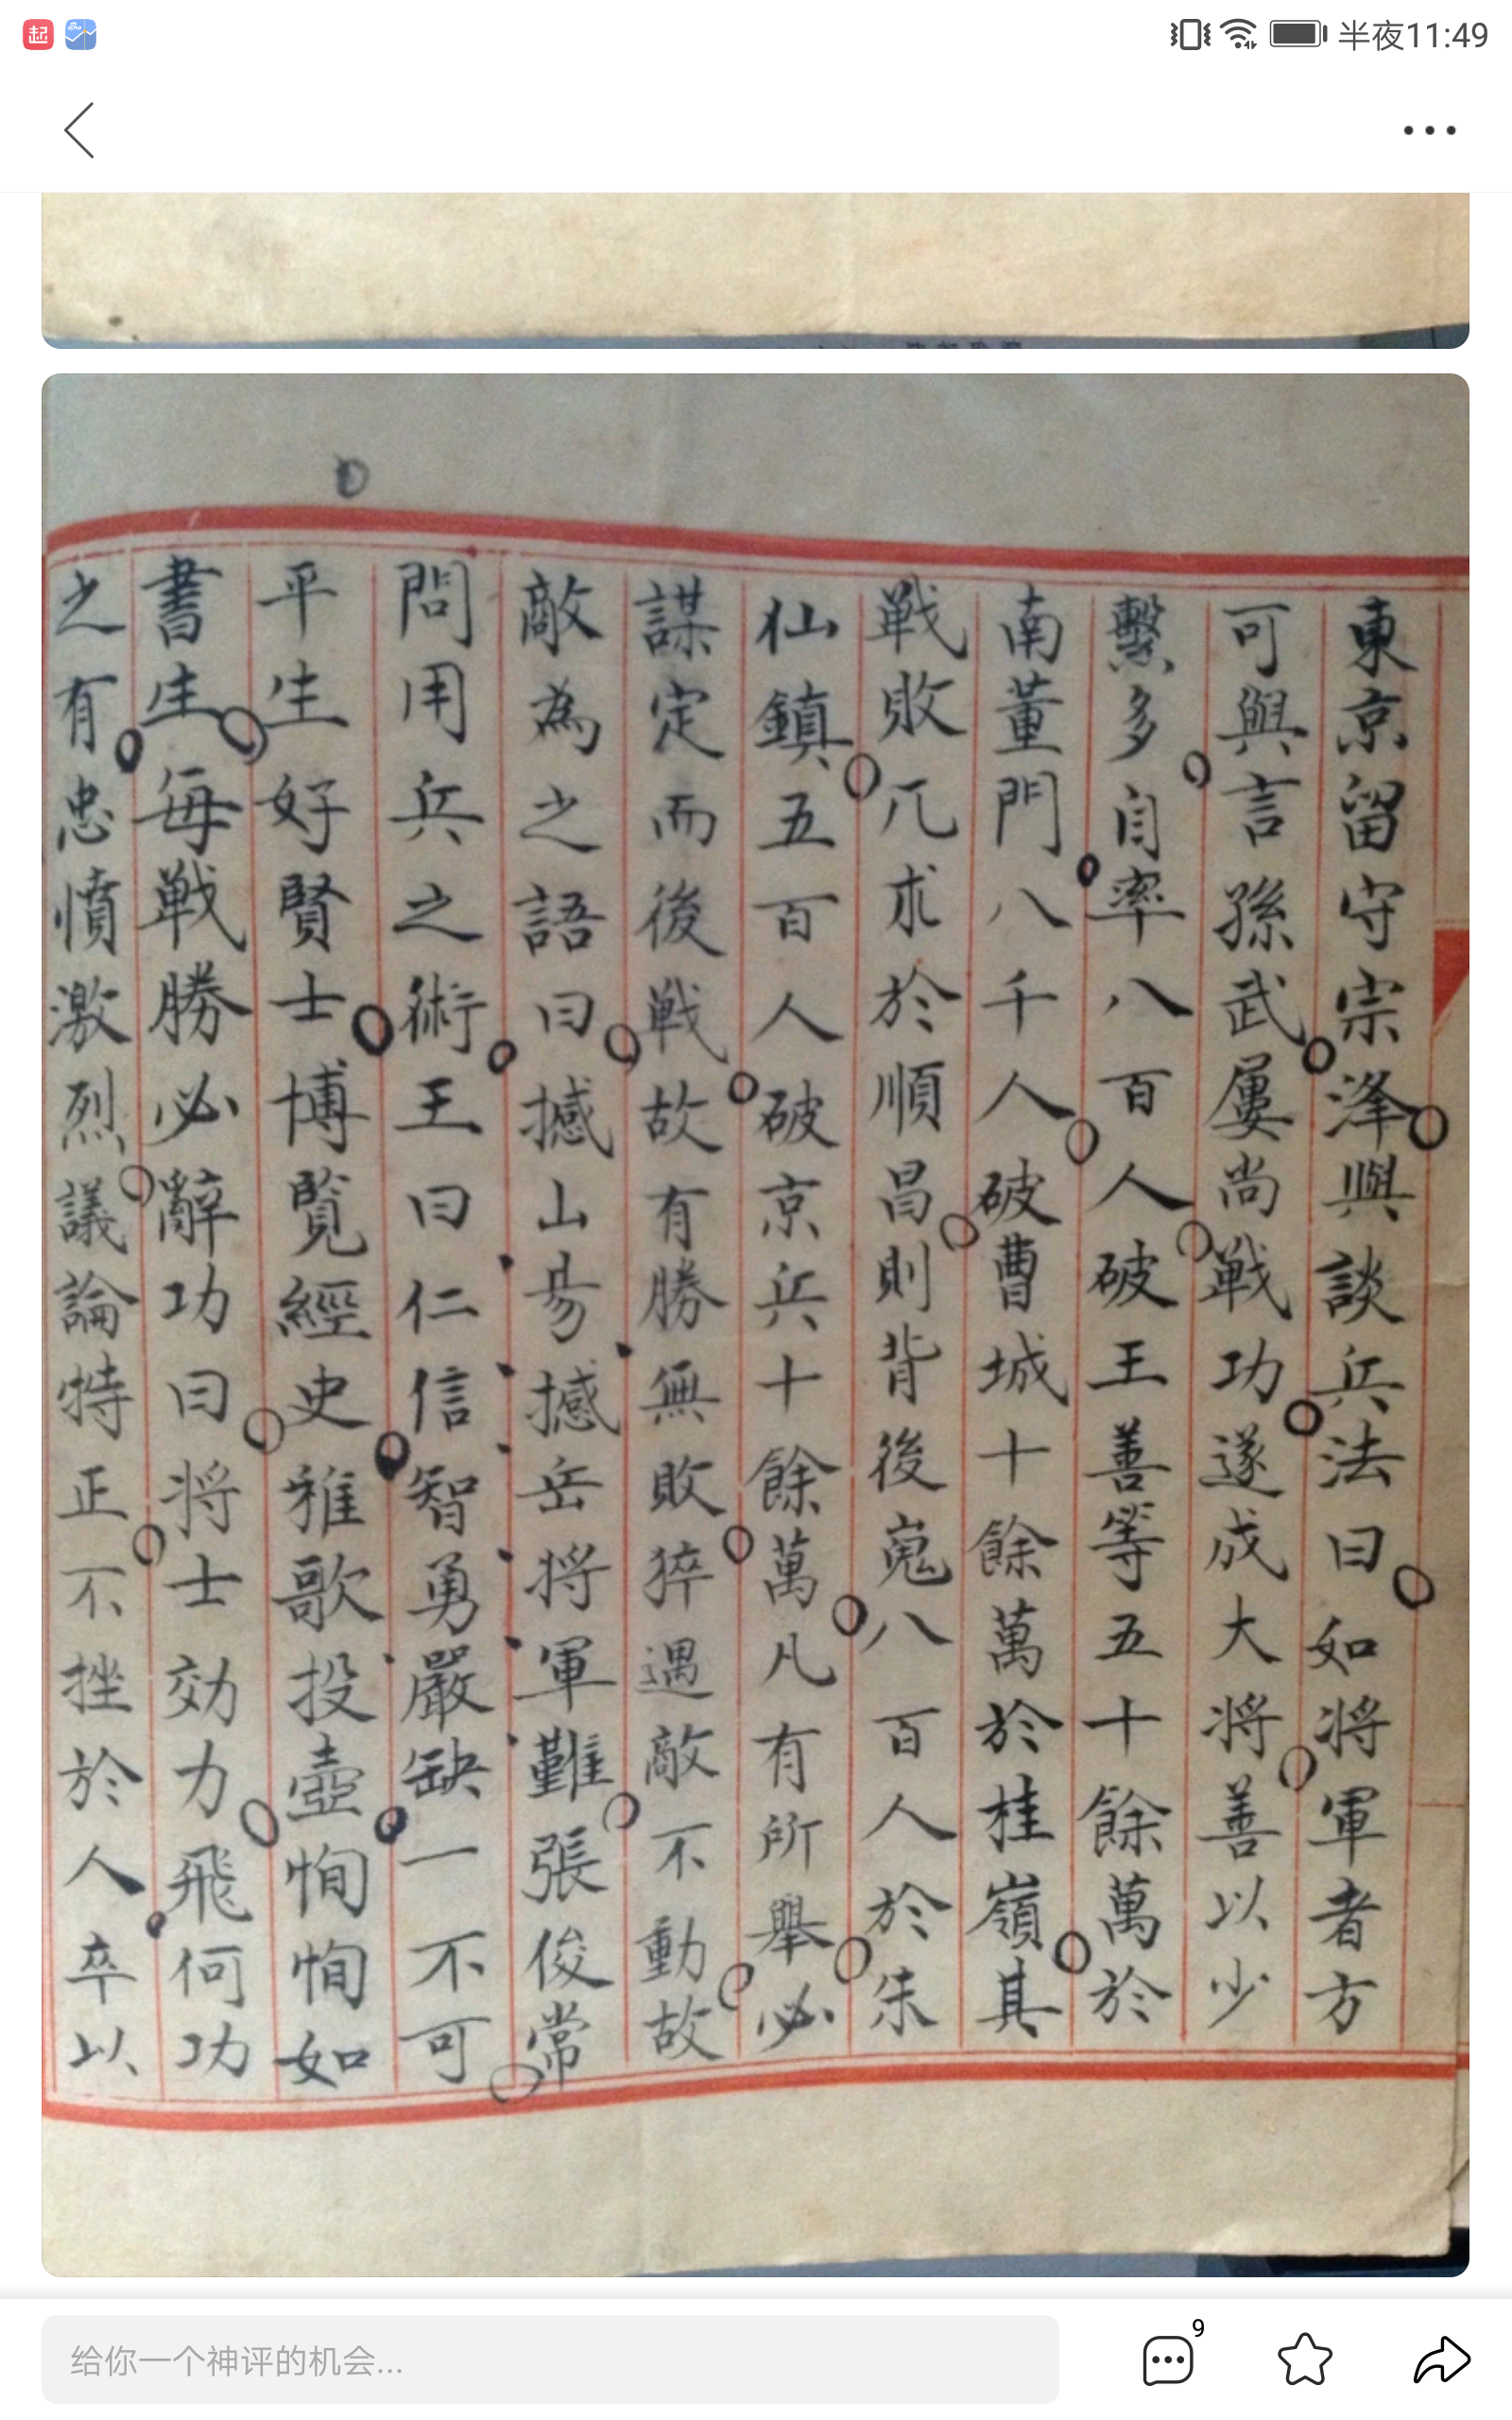 起
半夜11:49
東京留守宗澤與談兵法曰如将軍者方
可與言孫武屢尚戰功遂成大将善以少
繫多自率八百人破王善等五十餘萬於
南董門八千人破曹城十餘萬於桂嶺其
戰敗兀朮於順昌則背後嵬八百人於朱
仙鎮五百人破京兵十餘萬凡有所舉必
謀定而後戰故有勝無敗猝遇敵不動故
敵為之語曰撼山易撼岳将軍難張俊常
問用兵之術王曰仁信智勇嚴缺一不可
平生好賢士博覽經史雅歌投壺恂恂如
書生每戰勝必辭功曰将士効力飛何功
之有忠憤激烈議論特正不挫於人卒以
给你一个神评的机会...
9